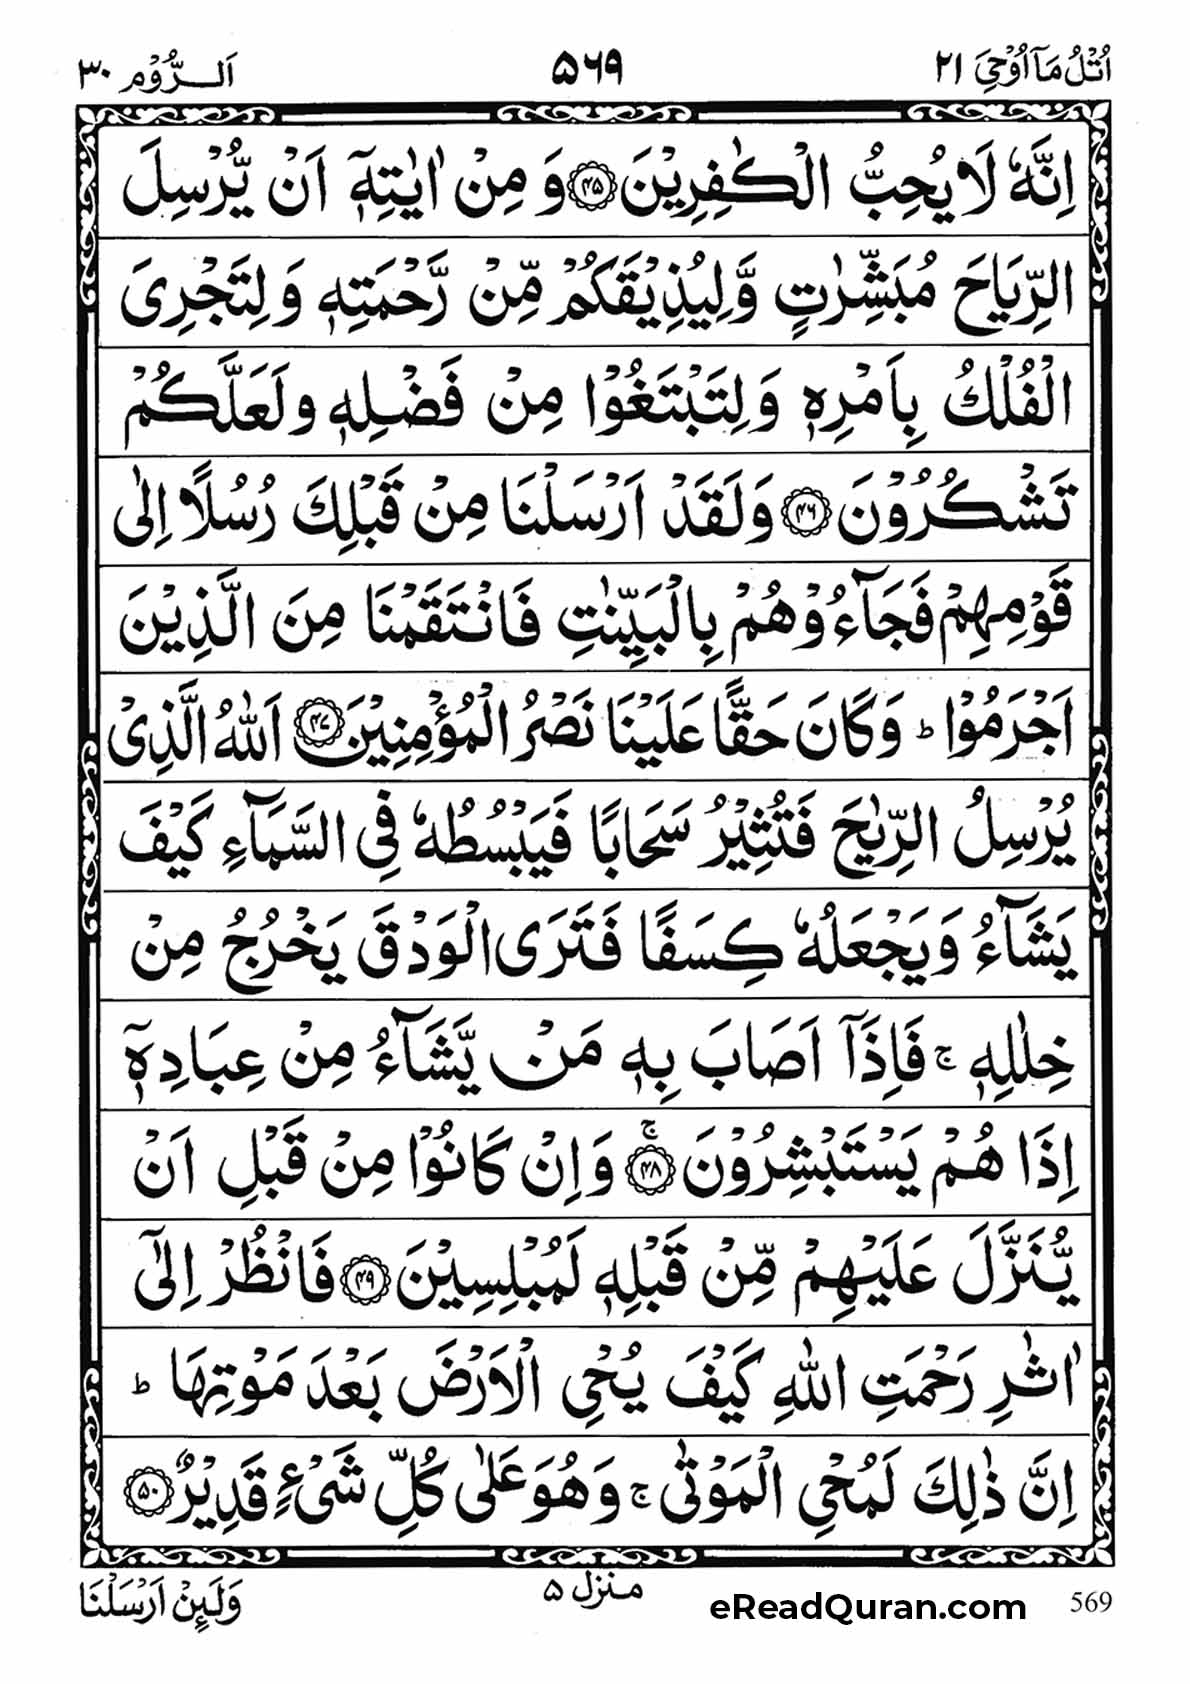 اُتْلُ مَآ اُوْحِیَ ۲۱
۵۶۹
اَلــرُّوْم ۳۰
اِنَّهٗ لَا یُحِبُّ الْكٰفِرِیْنَ ﴿۴۵﴾ وَ مِنْ اٰیٰتِهٖۤ اَنْ یُّرْسِلَ
الرِّیَاحَ مُبَشِّرٰتٍ وَّلِیُذِیْقَكُمْ مِّنْ رَّحْمَتِهٖ وَلِتَجْرِیَ
الْفُلْكُ بِاَمْرِهٖ وَلِتَبْتَغُوْا مِنْ فَضْلِهٖ وَلَعَلَّكُمْ
تَشْكُرُوْنَ ﴿۴۶﴾ وَلَقَدْ اَرْسَلْنَا مِنْ قَبْلِكَ رُسُلًا اِلٰی
قَوْمِهِمْ فَجَآءُوْهُمْ بِالْبَیِّنٰتِ فَانْتَقَمْنَا مِنَ الَّذِیْنَ
اَجْرَمُوْا ؕ وَكَانَ حَقًّا عَلَیْنَا نَصْرُ الْمُؤْمِنِیْنَ ﴿۴۷﴾ اَللّٰهُ الَّذِیْ
یُرْسِلُ الرِّیٰحَ فَتُثِیْرُ سَحَابًا فَیَبْسُطُهٗ فِی السَّمَآءِ كَیْفَ
یَشَآءُ وَیَجْعَلُهٗ كِسَفًا فَتَرَی الْوَدْقَ یَخْرُجُ مِنْ
خِلٰلِهٖ ۚ فَاِذَاۤ اَصَابَ بِهٖ مَنْ یَّشَآءُ مِنْ عِبَادِهٖۤ
اِذَا هُمْ یَسْتَبْشِرُوْنَ ۚ﴿۴۸﴾ وَاِنْ كَانُوْا مِنْ قَبْلِ اَنْ
یُّنَزَّلَ عَلَیْهِمْ مِّنْ قَبْلِهٖ لَمُبْلِسِیْنَ ﴿۴۹﴾ فَانْظُرْ اِلٰۤی
اٰثٰرِ رَحْمَتِ اللّٰهِ كَیْفَ یُحْیِ الْاَرْضَ بَعْدَ مَوْتِهَا ؕ
اِنَّ ذٰلِكَ لَمُحْیِ الْمَوْتٰی ۚ وَهُوَ عَلٰی كُلِّ شَیْءٍ قَدِیْرٌ ﴿۵۰﴾
569
eReadQuran.com
منزل ۵
وَلَىِٕنْ اَرْسَلْنَا